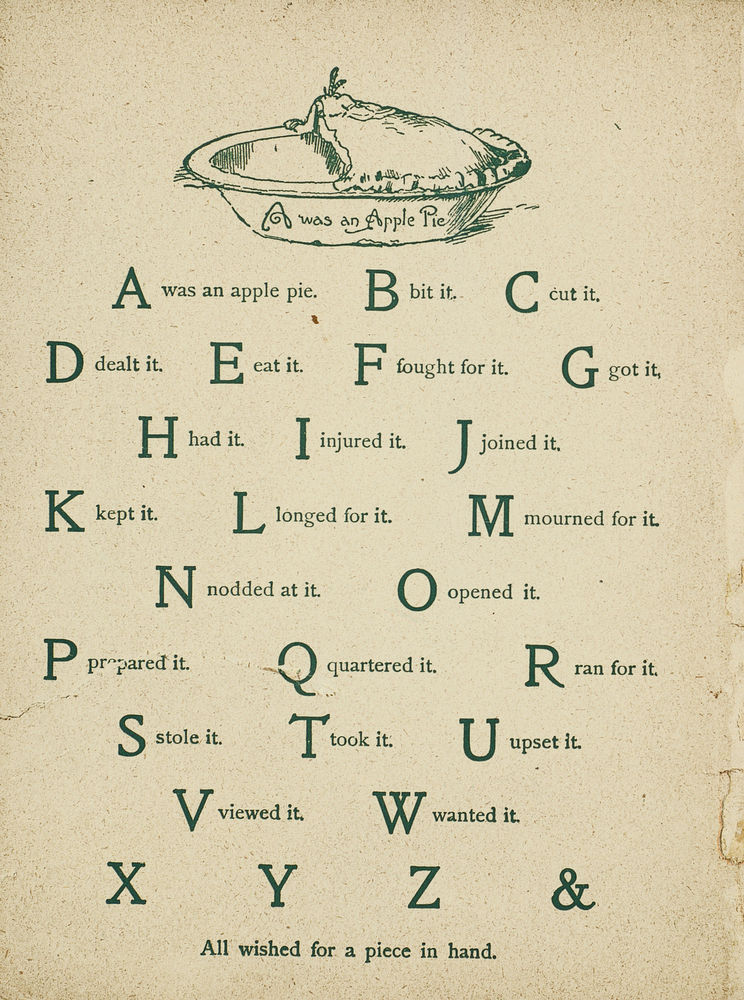 A was an Apple Pie
A was an apple pie. B bit it. C cut it.
D dealt it. E eat it. F fought for it. G got it,
H had it. I injured it. J joined it.
K kept it. L longed for it. M mourned for it.
N nodded at it. O opened it.
P prepared it. Q quartered it. R ran for it.
S stole it. T took it. U upset it.
V viewed it. W wanted it.
X Y Z &
All wished for a piece in hand.